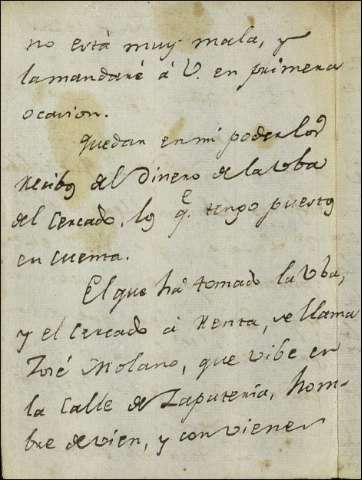 no está muy mala, y
la mandaré á V. en primera
ocasion.
Quedan en mi poder los
Recibos del Dinero de la Vba
del Cercado, los q.e tengo puestos
en cuenta.
El que ha tomado la Vba,
y el Cercado á Renta, se llama
José Molano, que vibe en
la Calle de Zapateria, hom-
bre de vien, y conviene